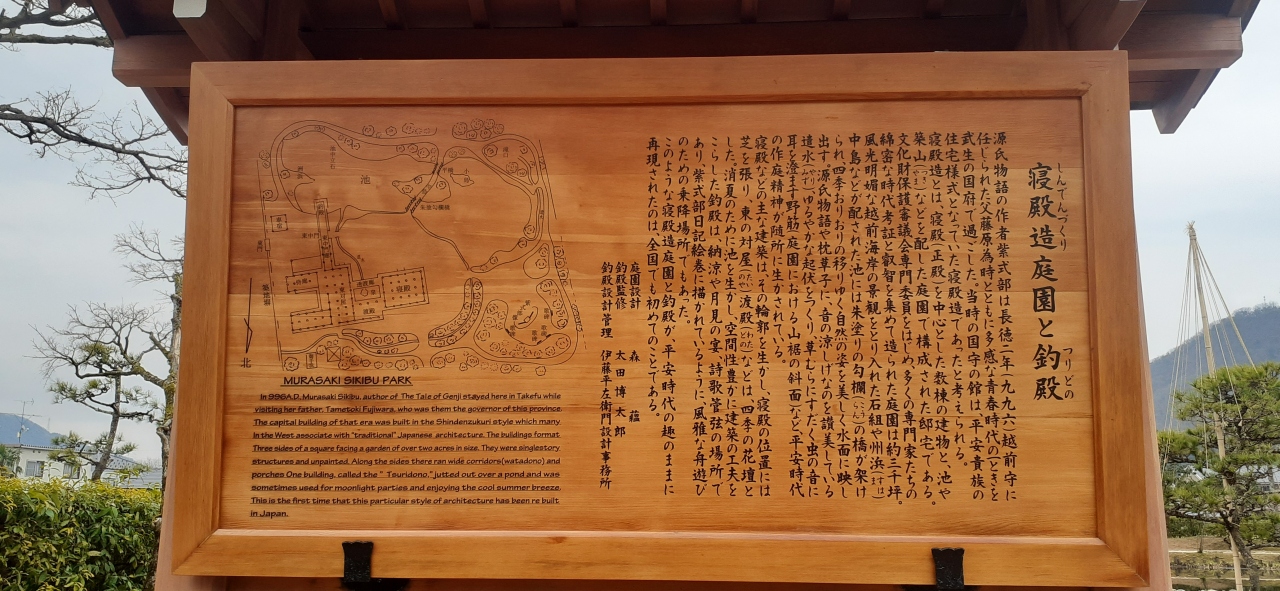 しんでんづくり　つりどの
寝殿造庭園と釣殿
源氏物語の作者紫式部は長徳二年(九九六)越前守に
任じられた父藤原為時とともに多感な青春時代のひとときを
武生の国府で過ごした。当時の国守の館は、平安貴族の
住宅様式となっていた寝殿造であったと考えられる。
寝殿造とは、寝殿(正殿)を中心とした数棟の建物と、池や
築山(つきやま)などを配した庭園で構成された邸宅である。
文化財保護審議会専門委員をはじめ、多くの専門家たちの
綿密な時代考証と叡智を集めて造られた庭園は約三千坪。
風光明媚な越前海岸の景観をとり入れた石組や州浜(すはま)
中島などが配された池には朱塗りの勾欄(こうらん)の橋が架け
られ、四季おりおりの移りゆく自然の姿を美しく水面に映し
出す。源氏物語や枕草子に、音の涼しげなのを讃美している
遣水(やりみず)ゆるやかな起伏をつくり、草むらにすだく虫の音に
耳を澄ます野筋(庭園における山裾の斜面)など平安時代
の作庭精神が随所に生かされている。
寝殿などの主な建築は、その輪郭を生かし、寝殿の位置には
芝を張り、東の対屋(たいのや)渡殿(わたどの)などは、四季の花壇と
した。消夏のために池を生かし、空間性豊かに建築の工夫を
こらした釣殿は、納涼や月見の宴、詩歌管弦の場所で
あり、紫式部日記絵巻に描かれているように、風雅な舟遊び
のための乗降場所でもあった。
このような寝殿造庭園と釣殿が、平安時代の趣のままに
再現されたのは、全国でも初めてのことである。
庭園設計　森　蘊
釣殿監修　太田博太郎
釣殿設計管理　伊藤平左衛門設計事務所
池
朱塗勾欄橋
東中門
寝殿
北
MURASAKI SIKIBU PARK
In 996A.D. Murasaki Sikibu, author of The Tale of Genji stayed here in Takefu while
visiting her father, Tametoki Fujiwara, who was them the governor of this province
The capital building of that era was built in the Shindenzukuri style which many
In the West associate with "traditional" Japanese architecture. The buildings format
Three sides of a square facing a garden of over two acres in size. They were singlestory
structures and unpainted. Along the sides there ran wide corridors(watadono) and
porches One building, called the " Tsuridono," jutted out over a pond and was
sometimes used for moonlight parties and enjoying the cool summer breeze.
This is the first time that this particular style of architecture has been re built
in Japan.